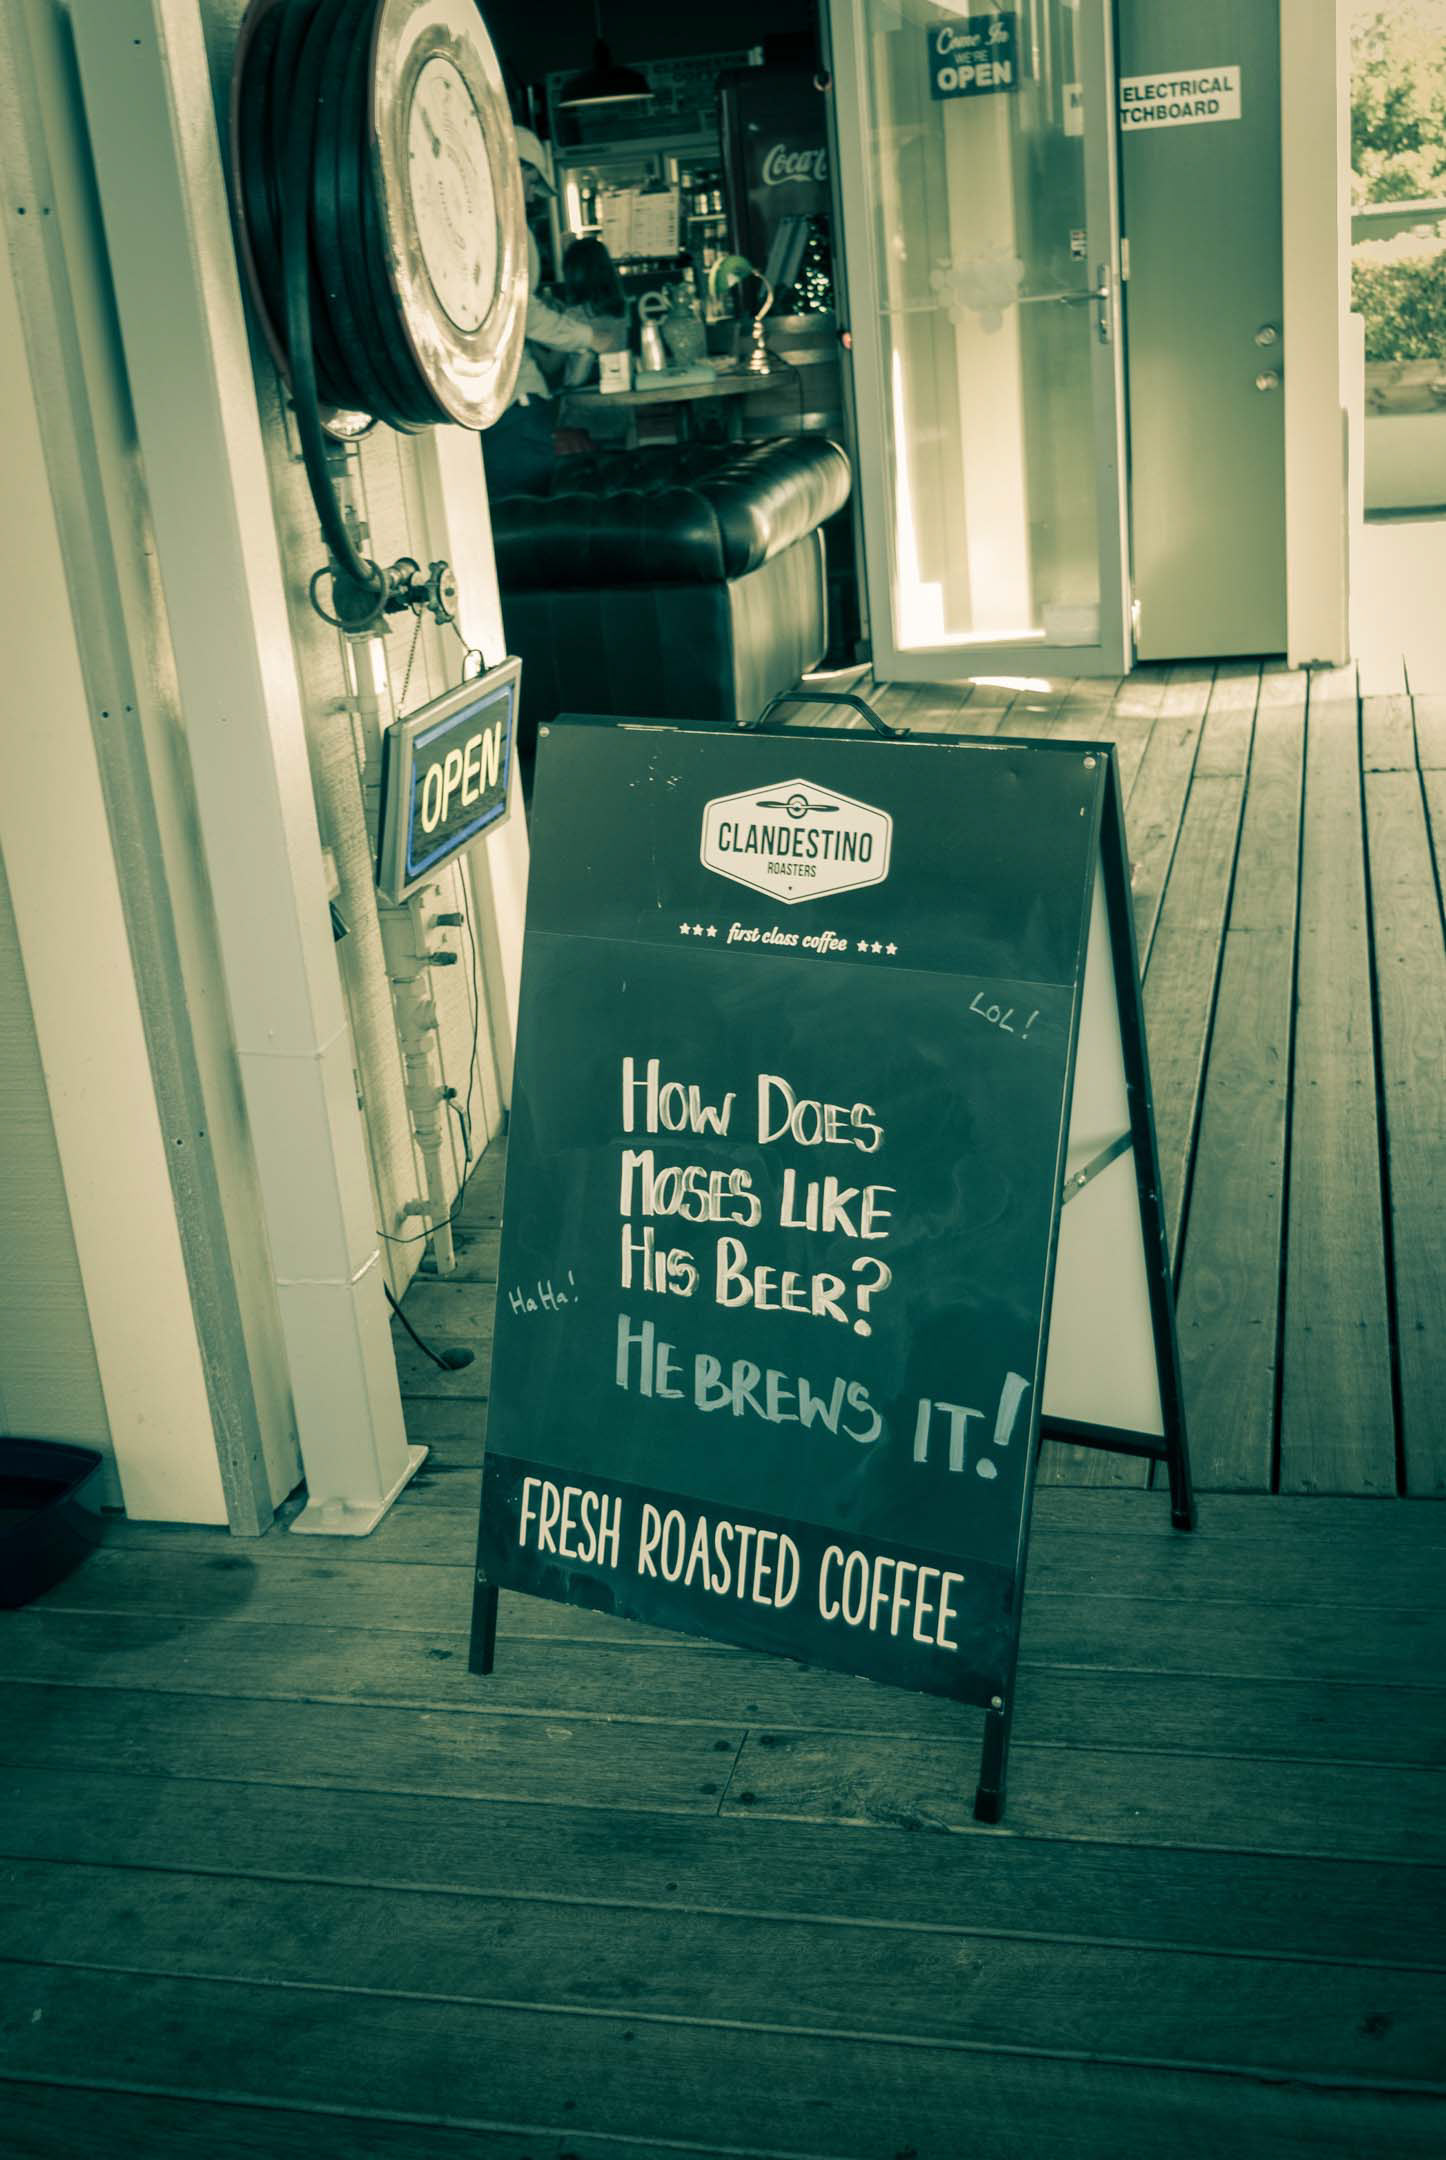 Come In
WE'RE
OPEN
ELECTRICAL
TCHBOARD
Coca
OPEN
CLANDESTINO
ROASTERS
first class coffee
LOL!
HOW DOES
MOSES LIKE
HIS BEER?
HaHa!
HEBREWS IT!
FRESH ROASTED COFFEE